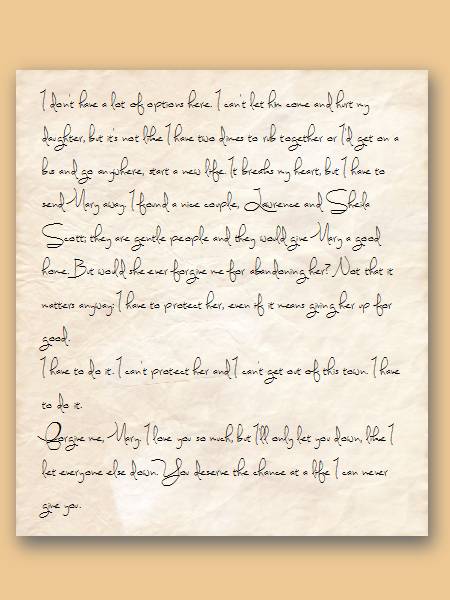 I don't have a lot of options here. I can't let him come and hurt my
daughter, but it's not like I have two dimes to rub together or I'd get on a
bus and go anywhere, start a new life. It breaks my heart, but I have to
send Mary away. I found a nice couple, Lawrence and Sheila
Scott; they are gentle people and they would give Mary a good
home. But would she ever forgive me for abandoning her? Not that it
matters anyway; I have to protect her, even if it means giving her up for
good.
I have to do it. I can't protect her and I can't get out of this town. I have
to do it.
Forgive me, Mary. I love you so much, but I'll only let you down, like I
let everyone else down. You deserve the chance at a life I can never
give you.